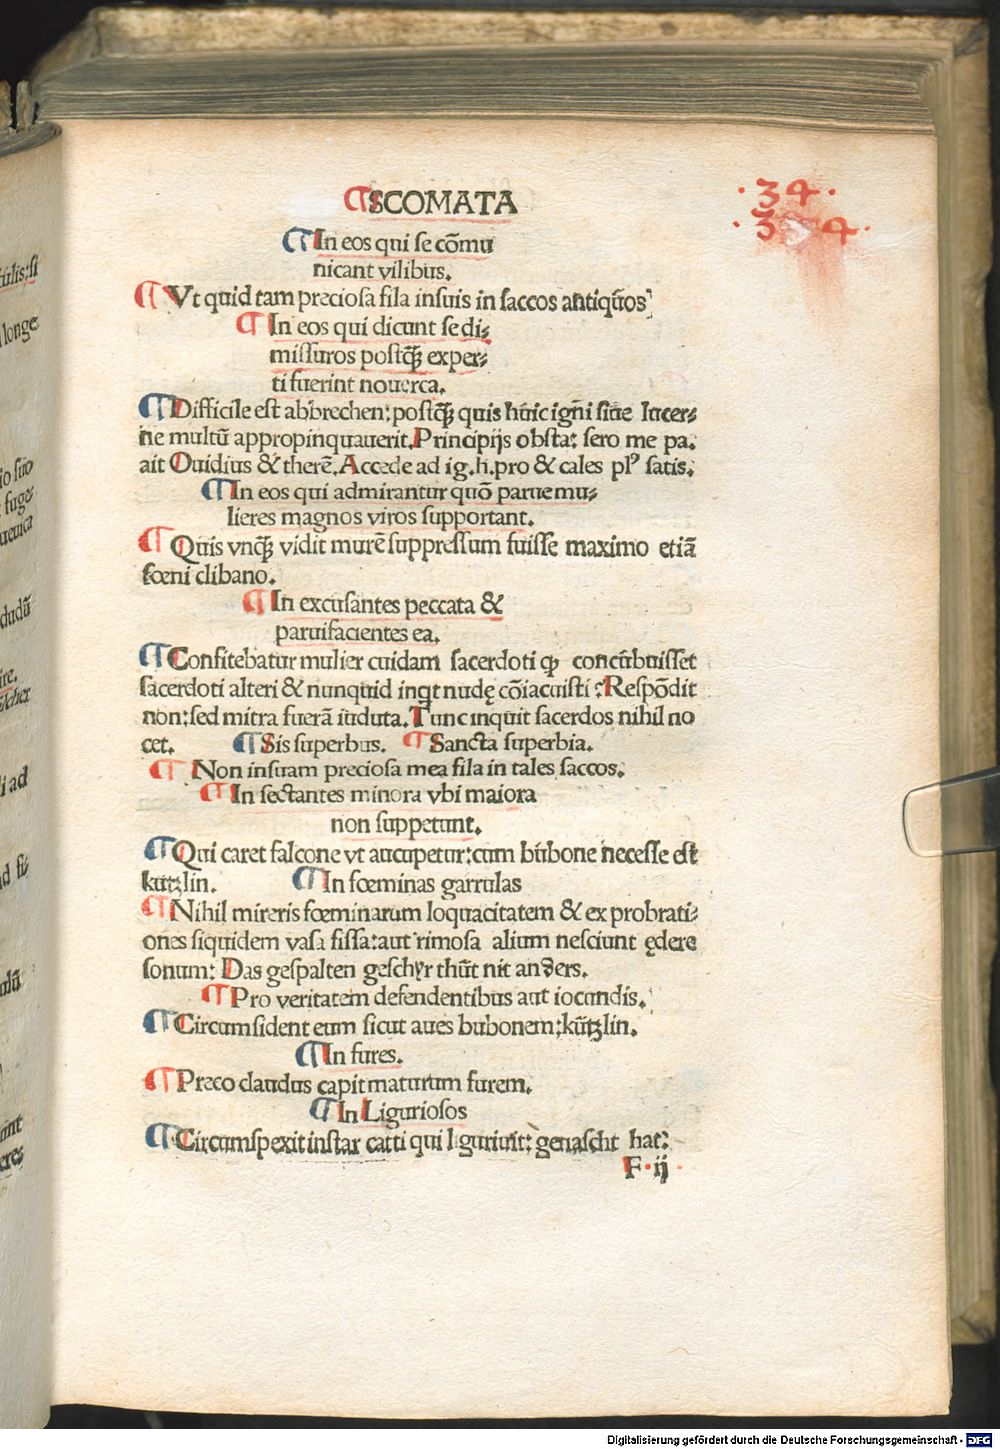 ¶SCOMATA
·34·
·3 4·
¶In eos qui se cōmu
nicant vilibus.
¶Vt quid tam preciosa fila insuis in saccos antiq̄os?
¶In eos qui dicunt se di⸗
missuros postq̄ȝ exper⸗
ti fuerint nouerca.
¶Difficile est abbrechen: postq̄ȝ quis huic igni siue lucer⸗
ne multū appropinquauerit. Principijs obsta: sero me pa.
ait Ouidius & therē. Accede ad ig. h. pro & cales plꝰ satis.
¶In eos qui admirantur quō paruemu⸗
lieres magnos viros supportant.
¶Quis vnq̄ȝ vidit murē suppressum fuisse maximo etiā
fœni clibano.
¶In excusantes peccata &
paruifacientes ea.
¶Confitebatur mulier cuidam sacerdoti ꝙ concūbuisset
sacerdoti alteri & nunquid inqt nudę cōiacuisti: Respōdit
non: sed mitra fuerā iūduta. Tunc inquit sacerdos nihil no
cet. ¶Sis superbus. ¶Sancta superbia.
¶Non insuam preciosa mea fila in tales saccos.
¶In sectantes minora vbi maiora
non suppetunt.
¶Qui caret falcone vt aucupetur: cum bubone necesse est
kützlin. ¶In fœminas garrulas
¶Nihil mireris fœminarum loquacitatem & ex probrati⸗
ones siquidem vasa fissa: aut rimosa alium nesciunt ędere
sonum: Das gespalten geschyr thůt nit anders.
¶Pro veritatem defendentibus aut iocundis.
¶Circumsident eum sicut aues bubonem: kützlin.
¶In fures.
¶Preco claudus capit maturum furem.
¶In Liguriosos
¶Circumspexit instar catti qui liguriuit: genascht hat:
F·ij
Digitalisierung gefördert durch die Deutsche Forschungsgemeinschaft - DFG